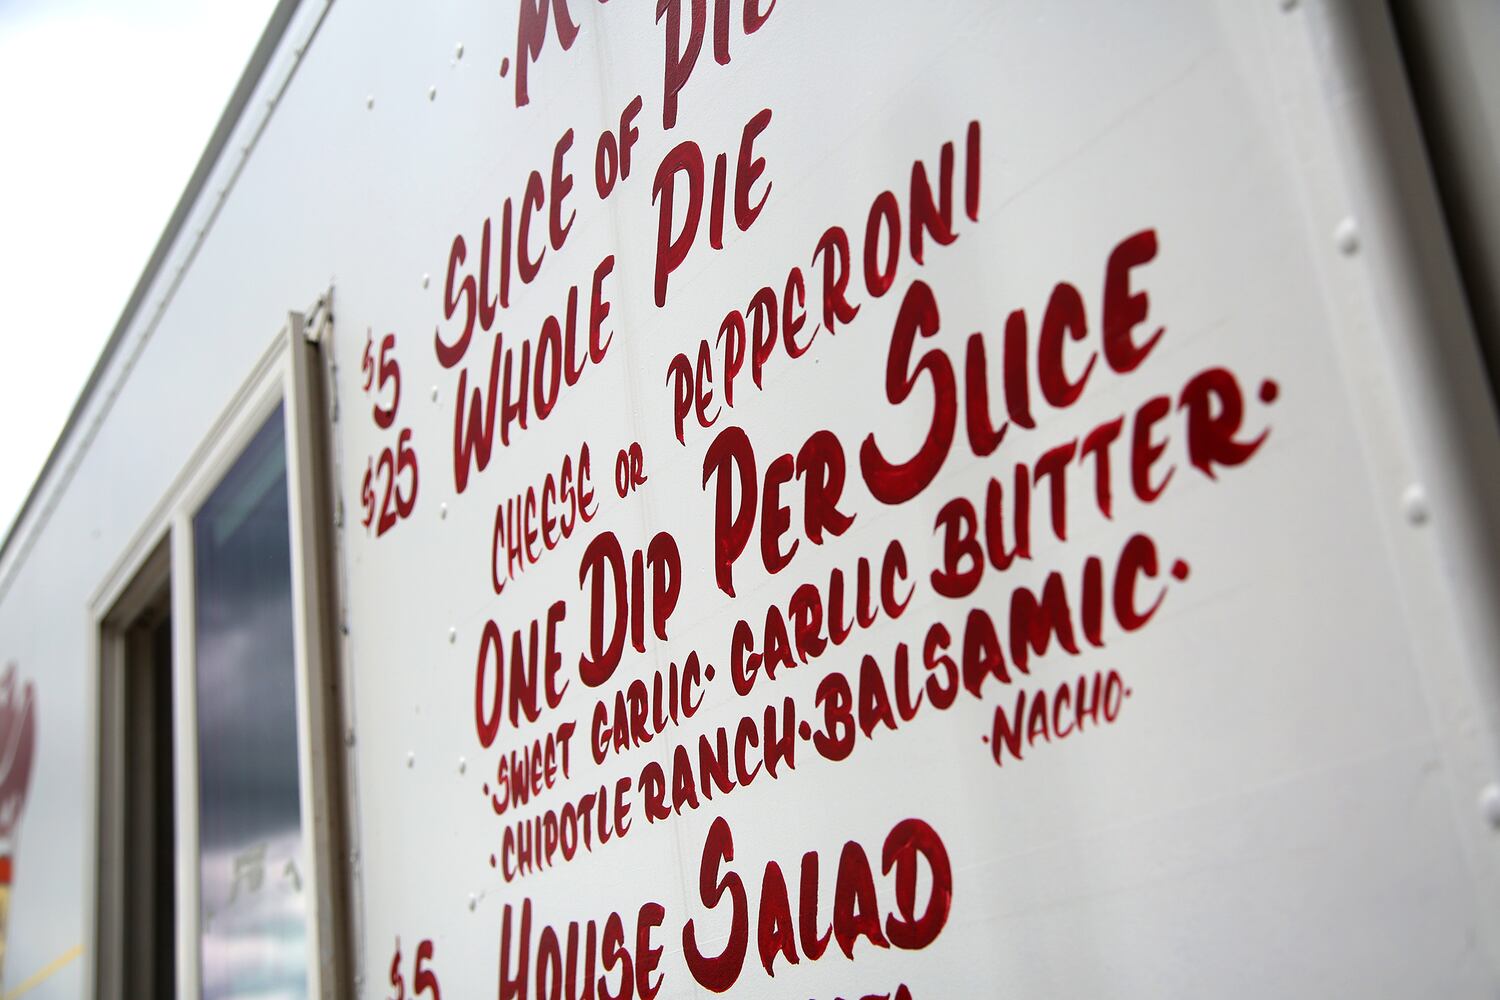 PIE
$5 SLICE OF PIE
$25 WHOLE PIE
CHEESE OR PEPPERONI
ONE DIP PER SLICE
·SWEET GARLIC· GARLIC BUTTER·
·CHIPOTLE RANCH·BALSAMIC·
·NACHO·
$5 HOUSE SALAD